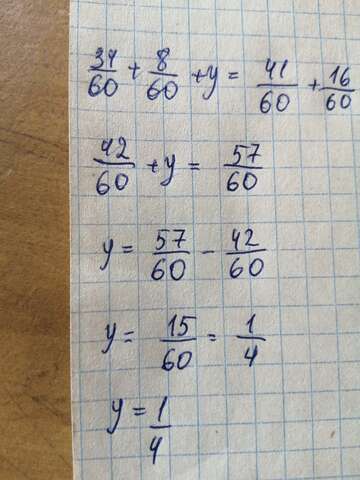 34/60 + 8/60 + y = 41/60 + 16/60
42/60 + y = 57/60
y = 57/60 - 42/60
y = 15/60 = 1/4
y = 1/4